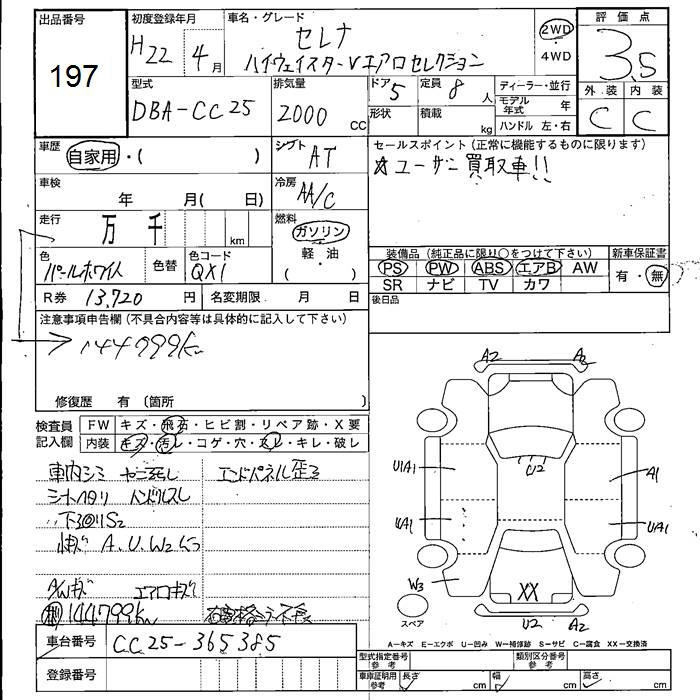 出品番号 初度登録年月 車名・グレード 評価点
197 H22年 4月 セレナ 2WD 3.5
ハイウェイスターVエアロセレクション ・4WD
型式 排気量 ドア 5 定員 8人 ディーラー・並行 外装 内装
DBA-CC25 2000cc 形状 積載 kg モデル年式 年 C C
ハンドル 左・右
車歴 自家用・( ) シフト AT セールスポイント(正常に機能するものに限ります)
☆ユーザー買取車!!
車検 年 月( 日) 冷房 AA/C
走行 万 千 km 燃料 ガソリン・軽油( )
色 パールホワイト 色替 色コード QX1 装備品(純正品に限り○をつけて下さい) 新車保証書
PS PW ABS エアB AW 有・無
SR ナビ TV カワ
R券 13,720円 名変期限 月 日 後日品
注意事項申告欄(不具合内容等は具体的に記入して下さい)
144799km
修復歴 有(箇所 )
検査員 FW キズ・飛石・ヒビ割・リペア跡・X要
記入欄 内装 キズ・汚レ・コゲ・穴・スレ・キレ・破レ
車内シミ エンドパネル歪ミ
シートヘタリ ハンドルスレ
下廻りS2
A.U.W2
A/Wキズ エアロキズ
144799km
車台番号 CC25-365385
登録番号
A2 A2
U2
U1A1 A1
UA1 UA1
W3 XX
スペア U2 A2
A-キズ E-エクボ U-凹み W-補修跡 S-サビ C-腐食 XX-交換済
型式指定番号 参考 類別区分番号 参考
車庫証明用 参考 長さ cm 幅 cm 高さ cm